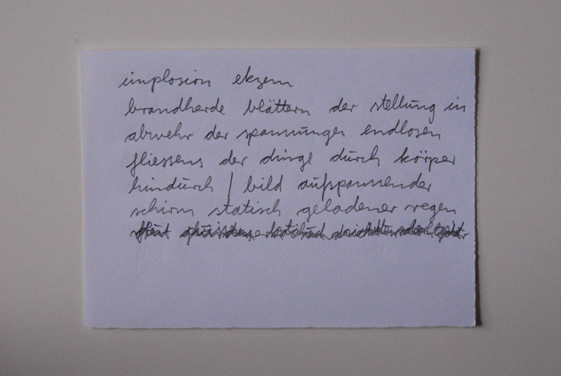 implosion ekzem
brandherde blättern der stellung in
abwehr der spannungen endlosen
fliessens der dinge durch körper
hindurch / bild aufspannender
schirm statisch geladener regen